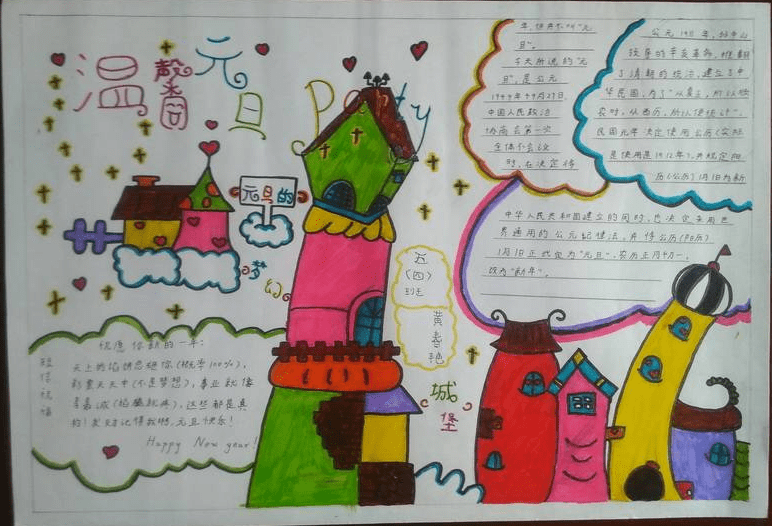 温馨元旦
Party
元旦的
梦幻
城堡
五
(四)
班
黄春艳
祝愿你新的一年:
短信祝福
天上的馅饼总砸你(概率100%),
彩票天天中(不是梦想),事业就像
李嘉诚(馅饼就典),这些都是真
的!发财记得我哟,元旦快乐!
Happy New year!
旦"。
今天所说的"元
旦",是公元
1949年9月27日,
中国人民政治
协商会第一次
全体会议
时,在决定
公元1911年,孙中山
领导的辛亥革命,推翻
了清朝的统治,建立了中
华民国。为了"从夏正,所以顺
农时,从西历,所以便统计",
民国元年决定使用公历(实际
是使用是1912年),并规定阳
历(公历)1月1日为新
中华人民共和国建立的同时,也决定采用世
界通用的公元纪律法,并将公历(阳历)
1月1日正式定为"元旦",农历正月初一,
改为"新年"。